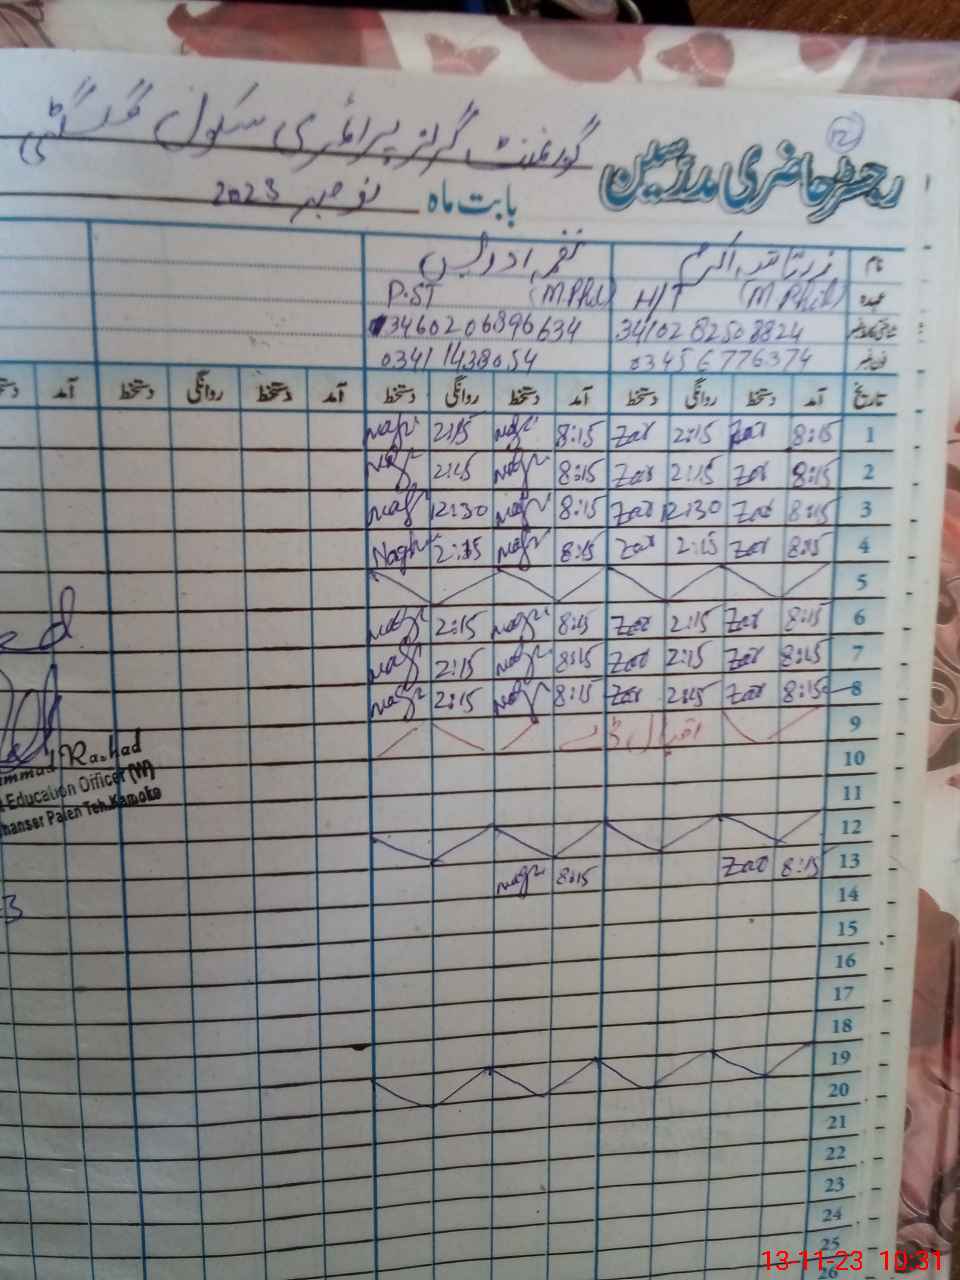 12
رجسٹر حاضری مدرسین گورنمنٹ گرلز پرائمری سکول
بابت ماہ نومبر 2023
نام زرتاشہ اکرم نغمہ ادریس
عہدہ H/T (M.Phil) P.ST (M.Phil)
3410282508824 3460206896634
03456776374 03411438054
تاریخ آمد دستخط روانگی دستخط آمد دستخط روانگی دستخط آمد دستخط روانگی دستخط آمد
1 8:15 Zar 2:15 Zar 8:15 nagh 2:15 nagh
2 8:15 Zar 2:15 Zar 8:15 nagh 2:15 nagh
3 8:15 Zar 12:30 Zar 8:15 nagh 12:30 nagh
4 8:15 Zar 2:15 Zar 8:15 nagh 2:15 Nagh
5
6 8:15 Zar 2:15 Zar 8:15 nagh 2:15 nagh
7 8:15 Zar 2:15 Zar 8:15 nagh 2:15 nagh
8 8:15 Zar 2:15 Zar 8:15 nagh 2:15 nagh
9 اقبال ڈے
10
11
12
13 8:15 Zar 8:15 nagh
14
15
16
17
18
19
20
21
22
23
24
25
26
Rashad
Education Officer (W)
Teh. Kamoke
13-11-23 10:31